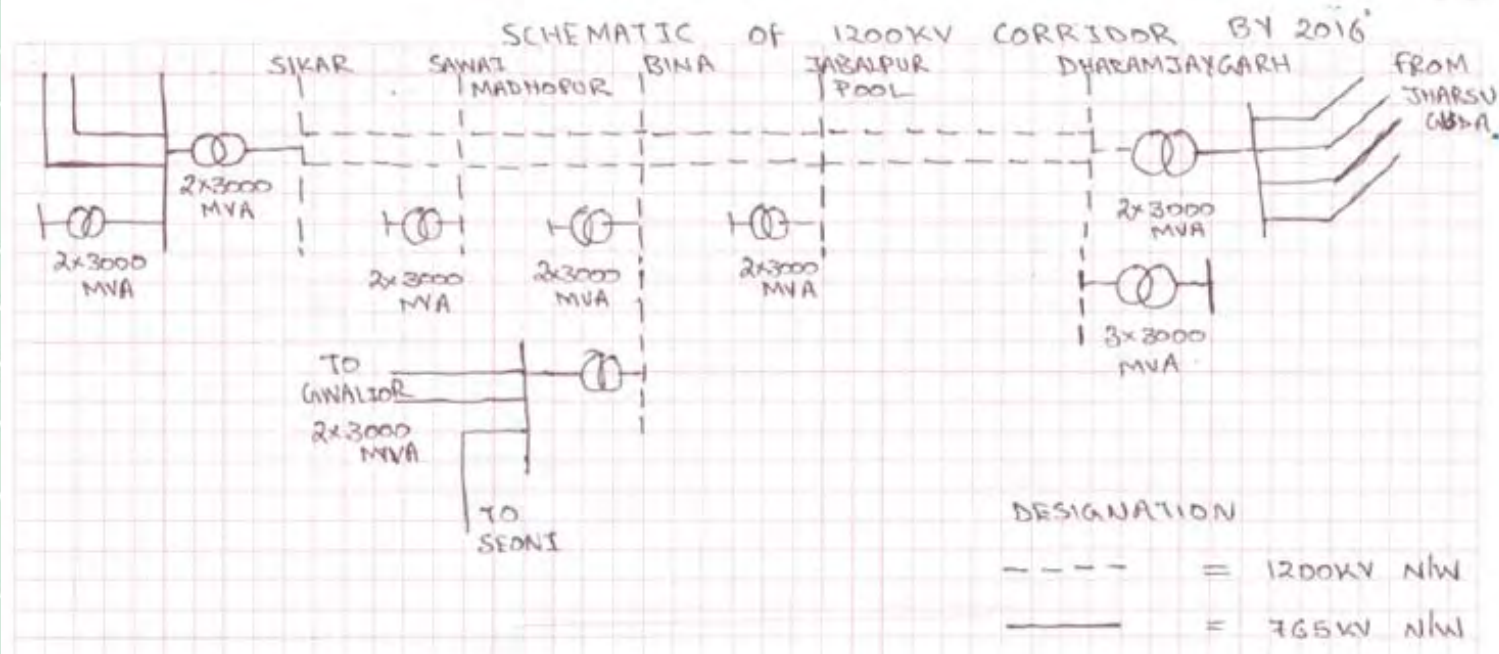 SCHEMATIC OF 1200KV CORRIDOR BY 2016'
SIKAR
SAWAI
MADHOPUR
BINA
JABALPUR
POOL
DHARAMJAYGARH
FROM
JHARSU
GUDA
2x3000
MVA
2x3000
MVA
2x3000
MVA
2x3000
MVA
2x3000
MVA
2x3000
MVA
3x3000
MVA
TO
GWALIOR
2x3000
MVA
TO
SEONI
DESIGNATION
---- = 1200KV N/W
—— = 765KV N/W